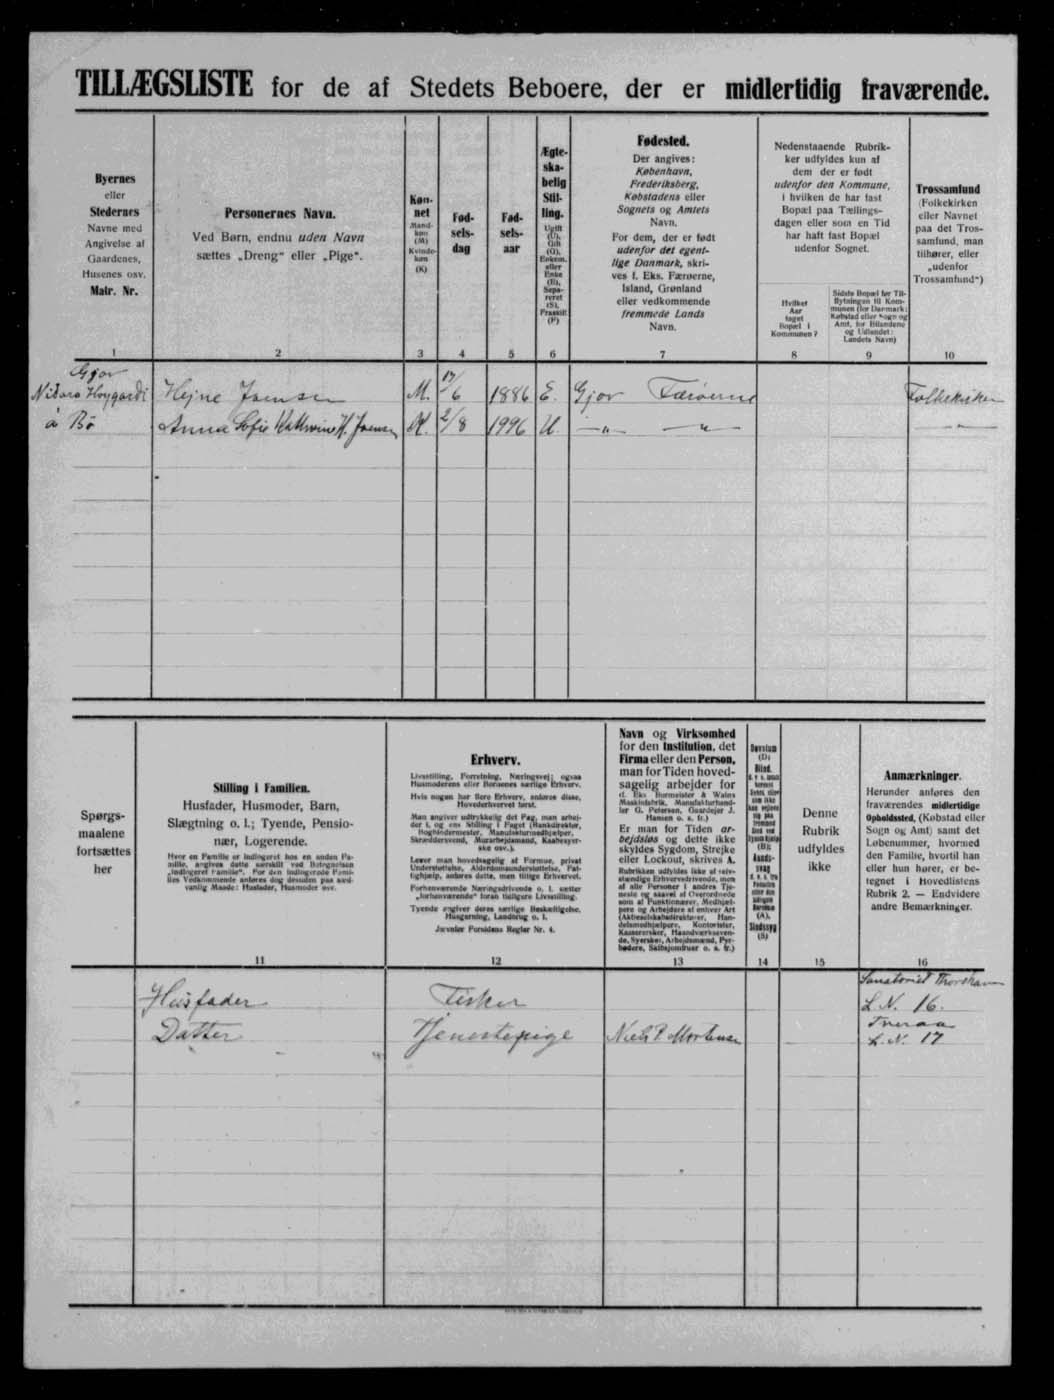 TILLÆGSLISTE for de af Stedets Beboere, der er midlertidig fraværende.
Byernes
eller
Stedernes
Navne med
Angivelse af
Gaardenes,
Husenes osv.
Matr. Nr.
1
Personernes Navn.
Ved Børn, endnu uden Navn
sættes „Dreng“ eller „Pige“.
2
Køn-
net
Mand-
køn
(M)
Kvinde-
køn
(K)
3
Fød-
sels-
dag
4
Fød-
sels-
aar
5
Ægte-
ska-
belig
Stil-
ling.
Ugift
(U),
Gift
(G),
Enkem.
eller
Enke
(E),
Sepa-
reret
(S),
Fraskilt
(F)
6
Fødested.
Der angives:
København,
Frederiksberg,
Købstadens eller
Sognets og Amtets
Navn.
For dem, der er født
udenfor det egent-
lige Danmark, skri-
ves f. Eks. Færøerne,
Island, Grønland
eller vedkommende
fremmede Lands
Navn.
7
Nedenstaaende Rubrik-
ker udfyldes kun af
dem der er født
udenfor den Kommune,
i hvilken de har fast
Bopæl paa Tællings-
dagen eller som en Tid
har haft fast Bopæl
udenfor Sognet.
Hvilket
Aar
taget
Bopæl i
Kommunen?
8
Sidste Bopæl før Til-
flytningen til Kom-
munen (for Danmark:
Købstad eller Sogn og
Amt, for Bilandene
og Udlandet:
Landets Navn)
9
Trossamfund
(Folkekirken
eller Navnet
paa det Tros-
samfund, man
tilhører, eller
„udenfor
Trossamfund“)
10
Gjov
Niðara Hoygardi Hejne Joensen M. 17/6 1886 E. Gjov Færøerne Folkekirken
á Bö Anna Sofie Kathrine H. Joensen K. 2/8 1996 U. — „ — — „ — — „ —
Spørgs-
maalene
fortsættes
her
Stilling i Familien.
Husfader, Husmoder, Barn,
Slægtning o. l.; Tyende, Pensio-
nær, Logerende.
Hvor en Familie er indlogeret hos en anden Fa-
milie, angives dette særskilt ved Betegnelsen
„indlogeret Familie“. For den indlogerede Fami-
lies Vedkommende anføres dog desuden paa sæd-
vanlig Maade: Husfader, Husmoder osv.
11
Erhverv.
Livsstilling, Forretning, Næringsvej; ogsaa
Husmoderens eller Børnenes særlige Erhverv.
Hvis nogen har flere Erhverv, anføres disse,
Hovederhvervet først.
Man angiver udtrykkelig det Fag, man arbej-
der i, og ens Stilling i Faget (Bankdirektør,
Bogbindermester, Manufakturmedhjælper,
Skræddersvend, Murarbejdsmand, Kaabesyer-
ske osv.).
Lever man hovedsagelig af Formue, privat
Understøttelse, Alderdomsunderstøttelse, Fat-
tighjælp, anføres dette, men tillige Erhvervet.
Forhenværende Næringsdrivende o. l. sætter
„forhenværende“ foran tidligere Livsstilling.
Tyende angiver deres særlige Beskæftigelse,
Husgerning, Landbrug o. l.
Jævnfør Forsidens Regler Nr. 4.
12
Navn og Virksomhed
for den Institution, det
Firma eller den Person,
man for Tiden hoved-
sagelig arbejder for
(f. Eks. Burmeister & Wains
Maskinfabrik, Manufakturhand-
ler G. Petersen, Gaardejer J.
Hansen o. s. fr.)
Er man for Tiden ar-
bejdsløs og dette ikke
skyldes Sygdom, Strejke
eller Lockout, skrives A.
Rubrikken udfyldes ikke af selv-
stændige Erhvervsdrivende, men
af alle Personer i andres Tje-
neste og saavel af Overordnede
som af Funktionærer, Medhjæl-
pere og Arbejdere af enhver Art
(Aktieselskabsdirektører, Han-
delsmedhjælpere, Kontorister,
Kassererseker, Haandværkssven-
de, Syersker, Arbejdsmænd, Fyr-
bødere, Skibsjomfruer o. s. fr.)
13
Døvstum
(D)
Blind,
(B);
Aands-
svag
(A),
Sindssyg
(S)
14
Denne
Rubrik
udfyldes
ikke
15
Anmærkninger.
Herunder anføres den
fraværendes midlertidige
Opholdssted, (Købstad eller
Sogn og Amt) samt det
Løbenummer, hvormed
den Familie, hvortil han
eller hun hører, er be-
tegnet i Hovedlistens
Rubrik 2. — Endvidere
andre Bemærkninger.
16
Sanatoriet Thorshavn
Husfader Fisker L. N. 16.
Tveraa
Datter Tjenestepige Niels P. Mortensen L. N. 17